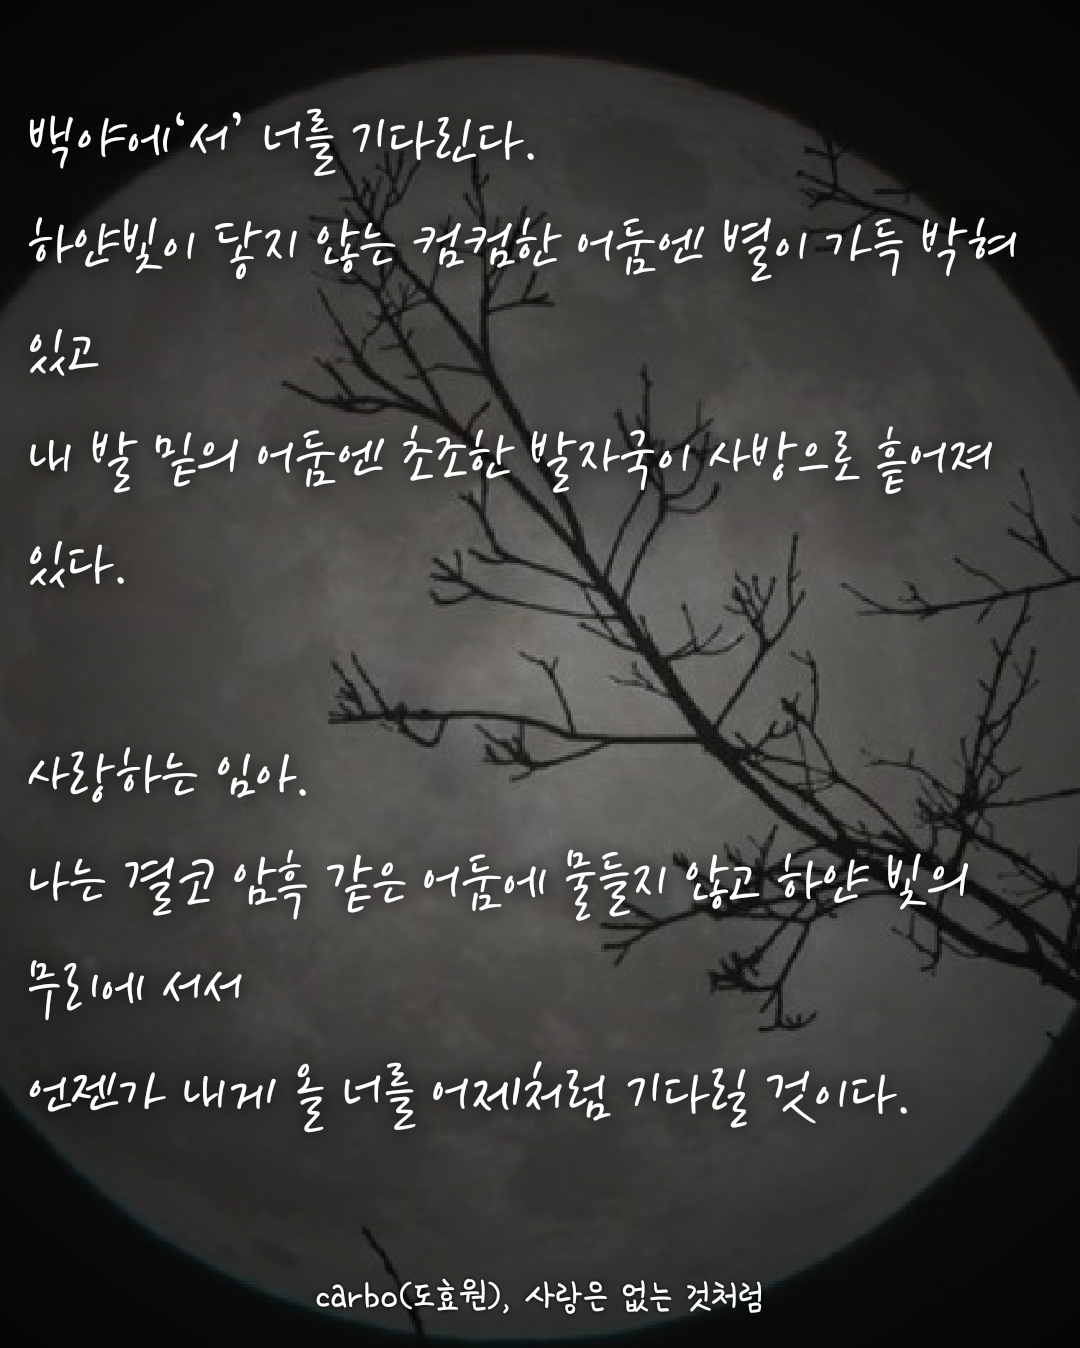 백야에‘서’ 너를 기다린다.
하얀빛이 닿지 않는 컴컴한 어둠엔 별이 가득 박혀
있고
내 발 밑의 어둠엔 초조한 발자국이 사방으로 흩어져
있다.
사랑하는 임아.
나는 결코 암흑 같은 어둠에 물들지 않고 하얀 빛의
무리에 서서
언젠가 내게 올 너를 어제처럼 기다릴 것이다.
carbo(도효원), 사랑은 없는 것처럼